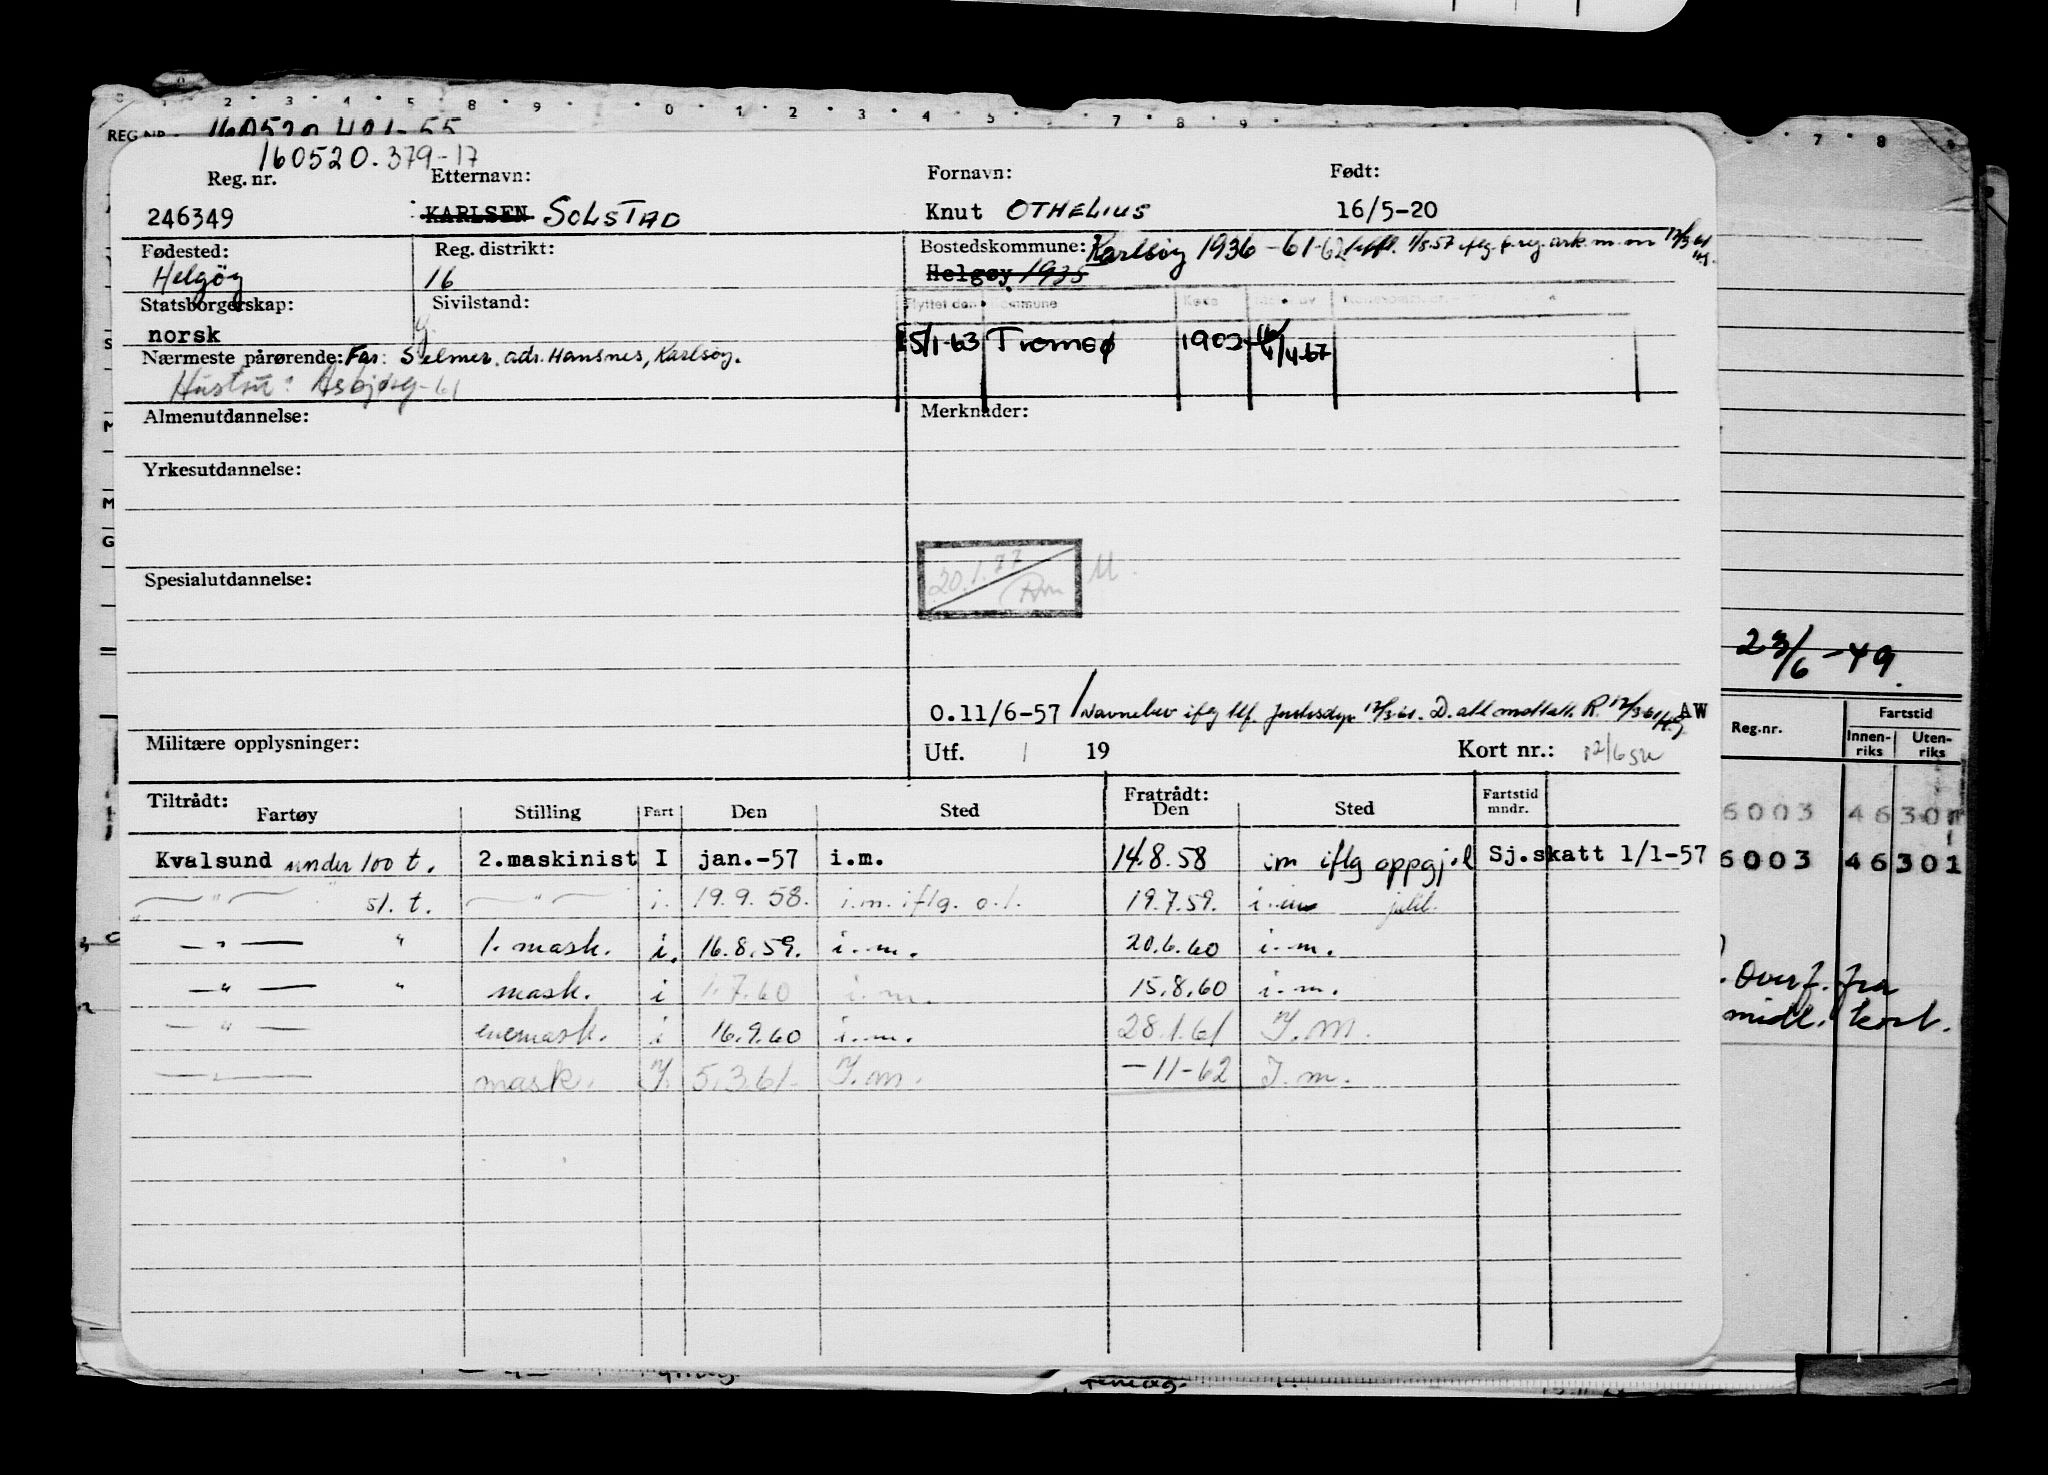 REG.NR. 160520 401-55
160520.379-17
Reg. nr. Etternavn: Fornavn: Født:
246349 KARLSEN SOLSTAD Knut OTHELIUS 16/5-20
Fødested: Reg. distrikt: Bostedskommune: Karlsøy 1936 -61-62
Helgöy 16 Helgøy 1935
Statsborgerskap: Sivilstand: Flyttet den Kommune
norsk g. 15/1-63 Tromsø 1902 /4-67
Nærmeste pårørende: Far: Selmer. adr. Hansnes, Karlsøy.
Hustru: Asbjørg-61
Almenutdannelse: Merknader:
Yrkesutdannelse:
20.1.77 M.
Spesialutdannelse:
23/6-49.
O.11/6-57 Navnebev iflg tlf. Justisdep 12/3-61. D.att mottatt. R. 12/3-61 AW
Militære opplysninger: Utf. 19 Kort nr.: 12/6 su
Reg.nr. Fartstid
Innen-riks Uten-riks
Tiltrådt: Fratrådt: Fartstid mndr.
Fartøy Stilling Fart Den Sted Den Sted
6003 46301
Kvalsund under 100 t. 2.maskinist I jan.-57 i.m. 14.8.58 im iflg oppgj.l Sj.skatt 1/1-57
6003 46301
—"— st. t. —"— i. 19.9.58. i.m. iflg. o.l. 19.7.59. i.m.
—"— " 1. mask. i. 16.8.59. i.m. 20.6.60 i.m.
—"— " mask. i 1.7.60 i.m. 15.8.60 i.m.
Overf. fra
midl. kort.
—"— enemask. i 16.9.60 i.m. 28.1.61 I.M.
—"— mask. I. 5.3.61. I.m. -11-62 I.m.